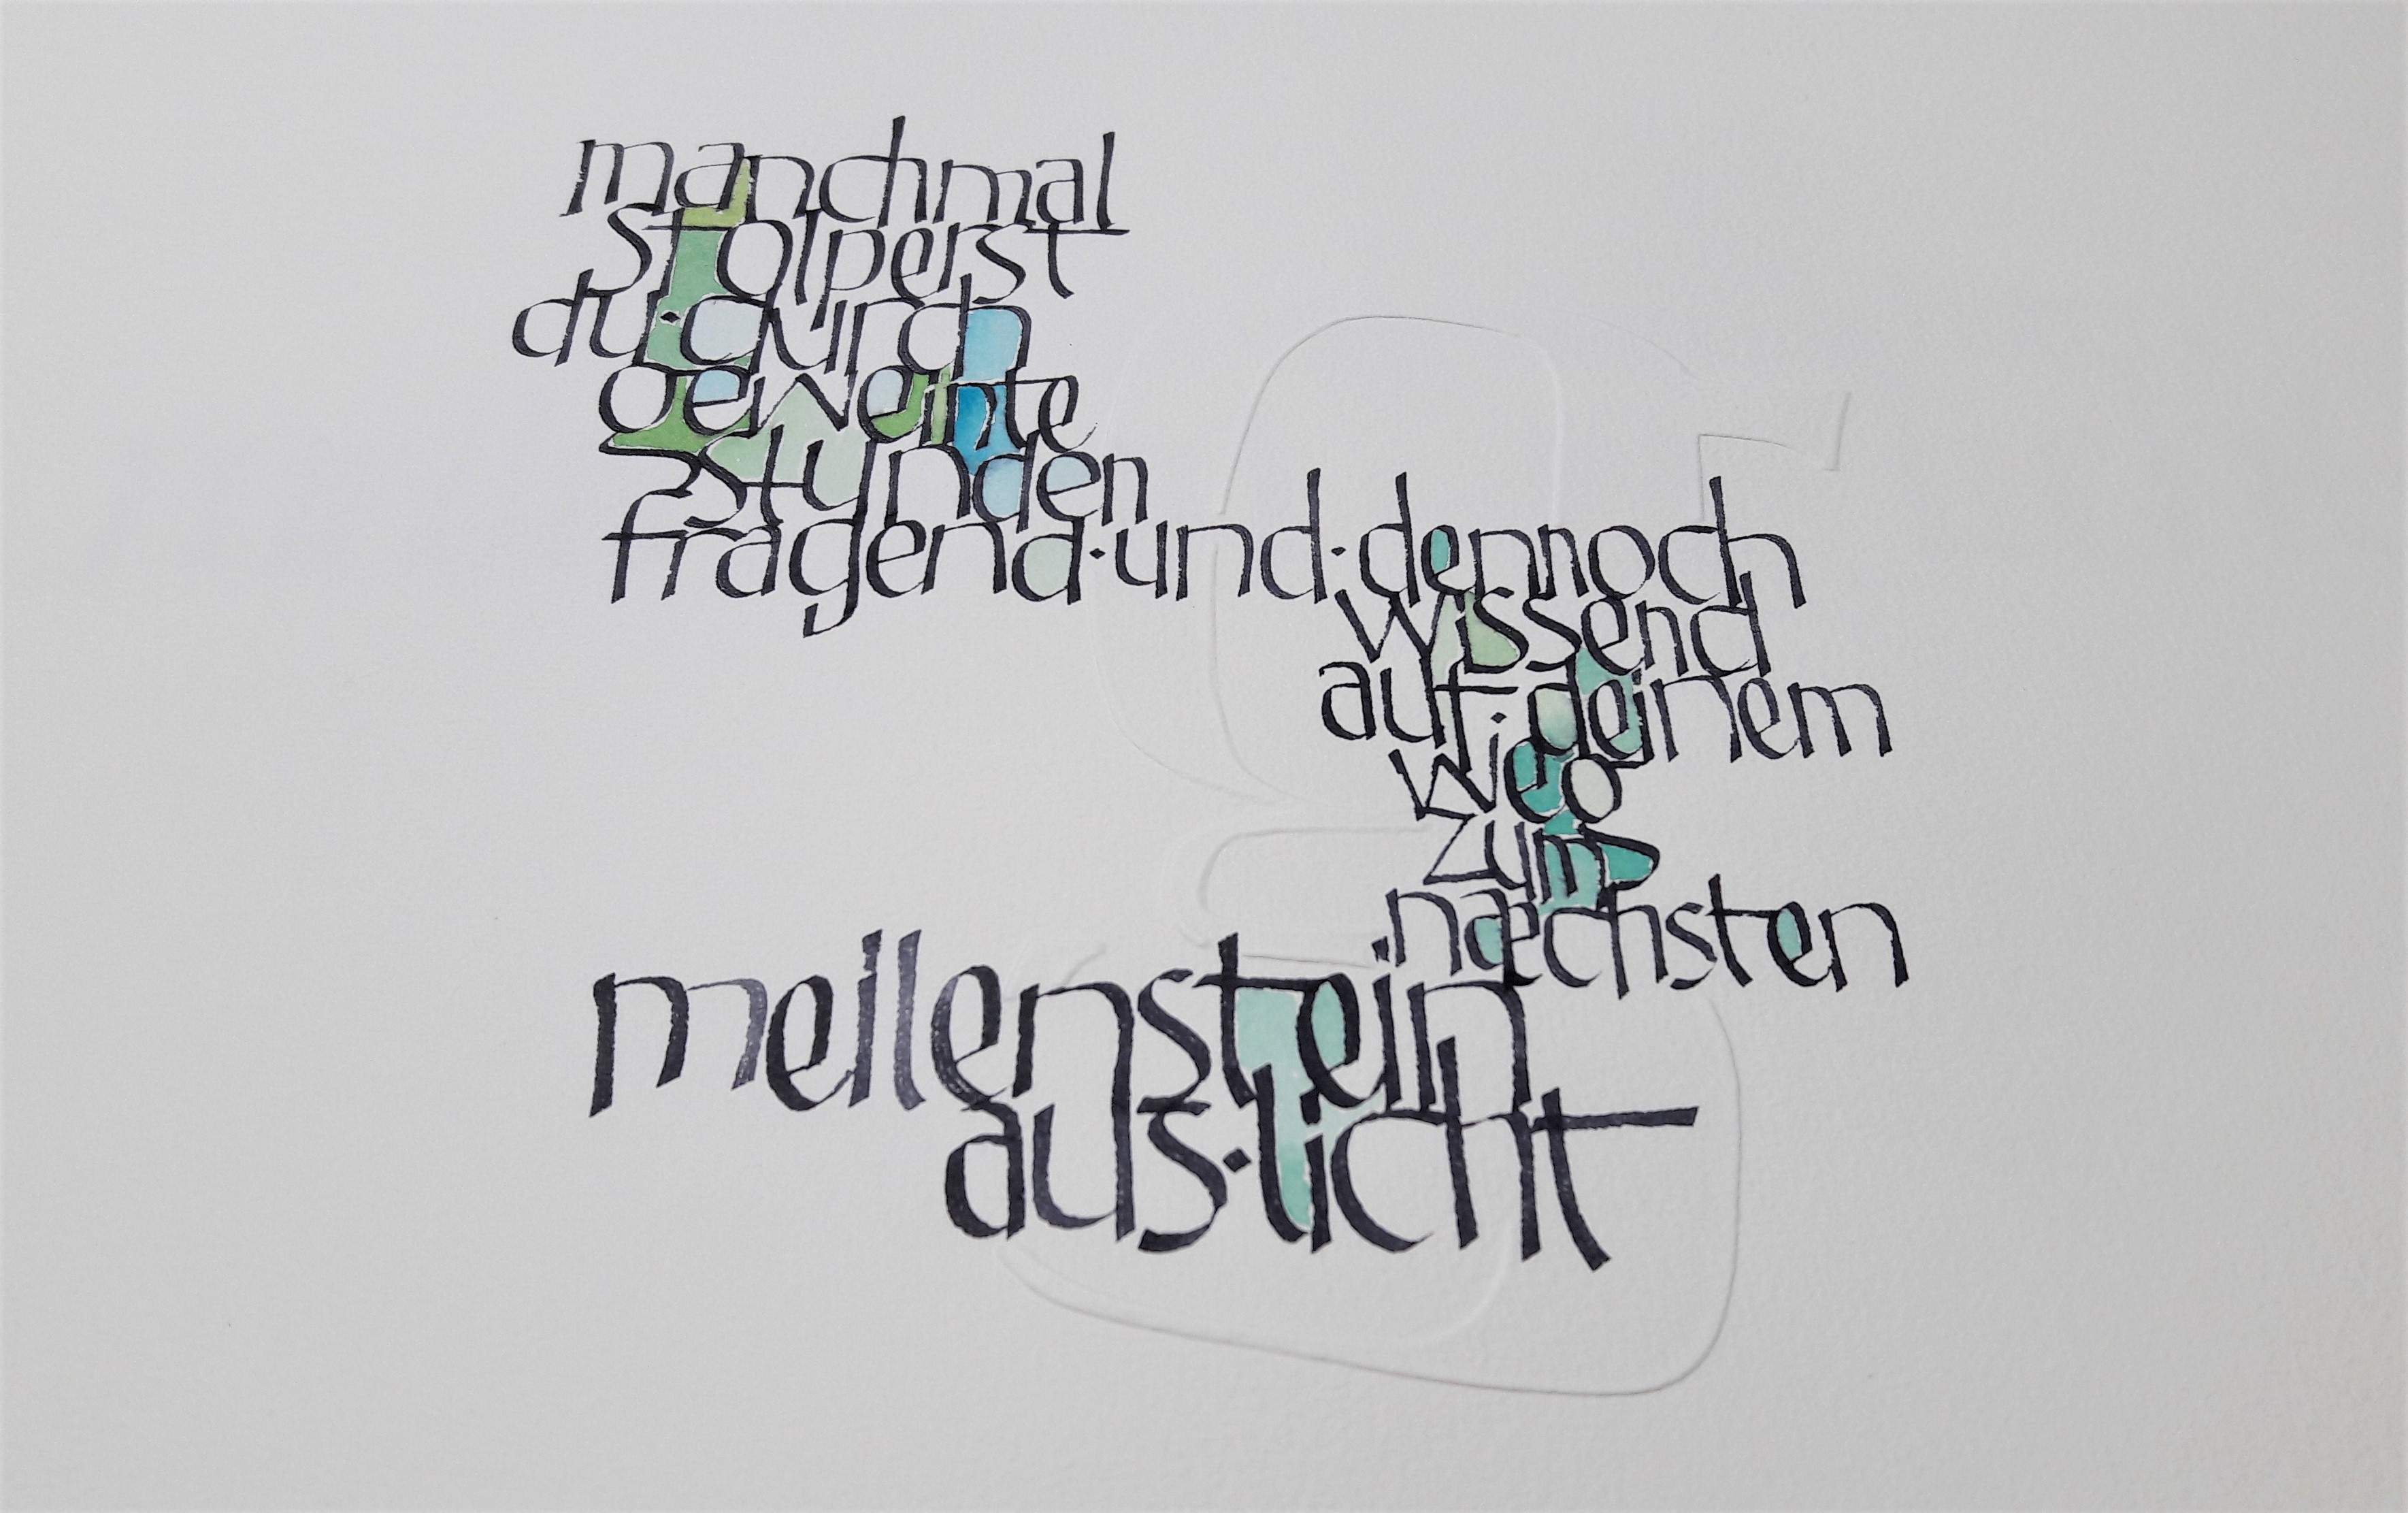 manchmal
stolperst
du·durch
geweinte
stunden
fragend·und·dennoch
wissend
auf·deinem
weg
zum
næchsten
meilenstein
aus·licht